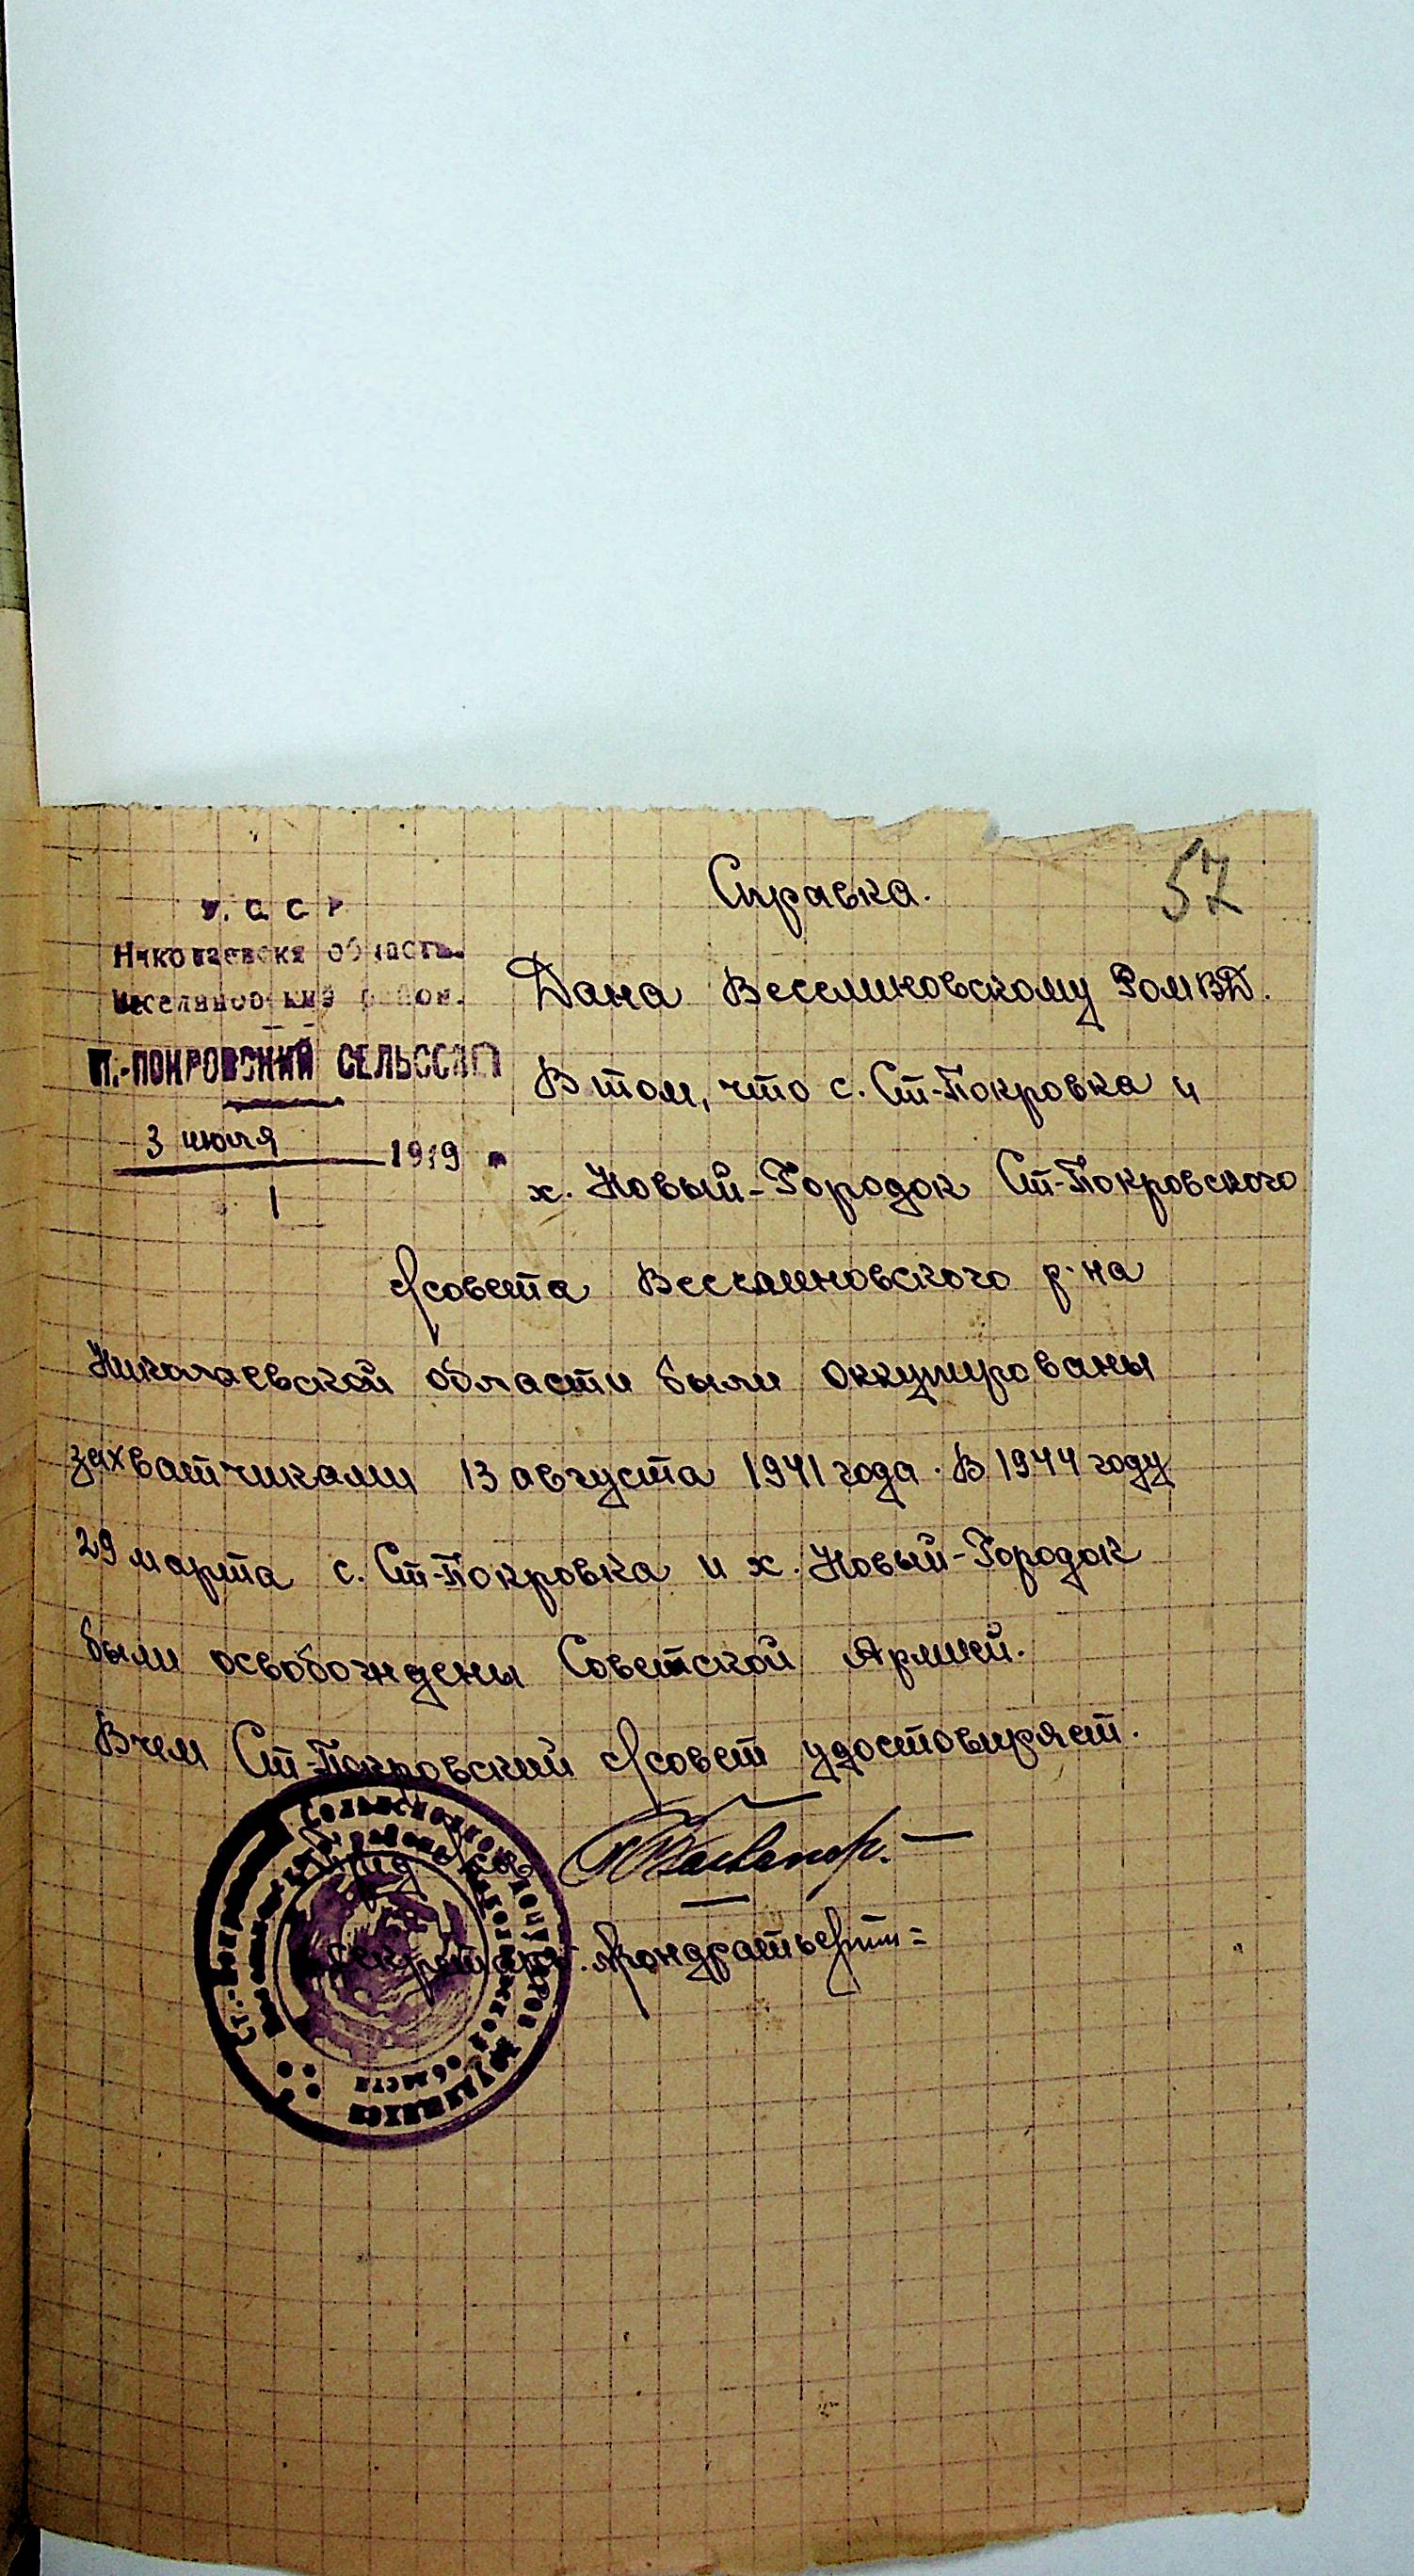 57
Справка.
У. С С Р
Николаевска область
Веселиновский район.
СТ.-ПОКРОВСКИЙ СЕЛЬССАД
3 июля 1949
Дана Веселиновскому РОМВД.
В том, что с. Ст-Покровка и
х. Новый-Городок Ст-Покровского
с/совета Веселиновского р-на
Николаевской области были оккупированы
захватчиками 13 августа 1941 года. В 1944 году
29 марта с. Ст-Покровка и х. Новый-Городок
были освобождены Советской Армией.
В чем Ст-Покровский с/совет удостовиряет.
Пред с/сов
секретарь. Кондратьев
Сельского
депутатов трудящихся
области